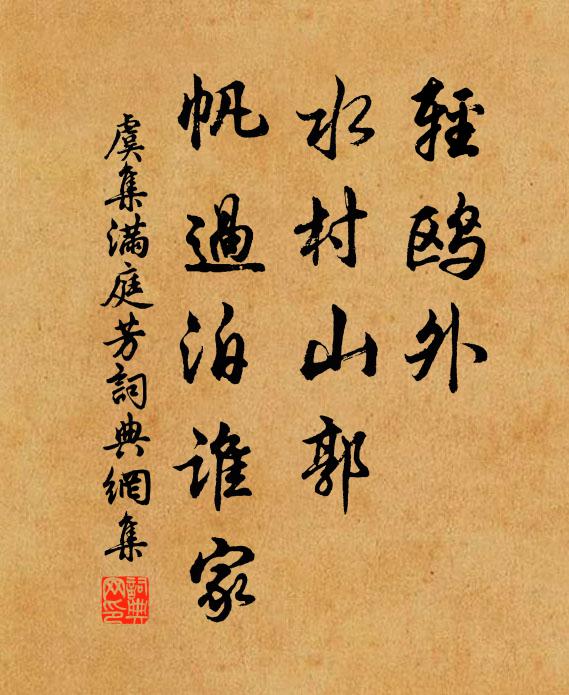 輕鷗外
水村山郭
帆過泊誰家
虞集滿庭芳詞典網集
詞典網印